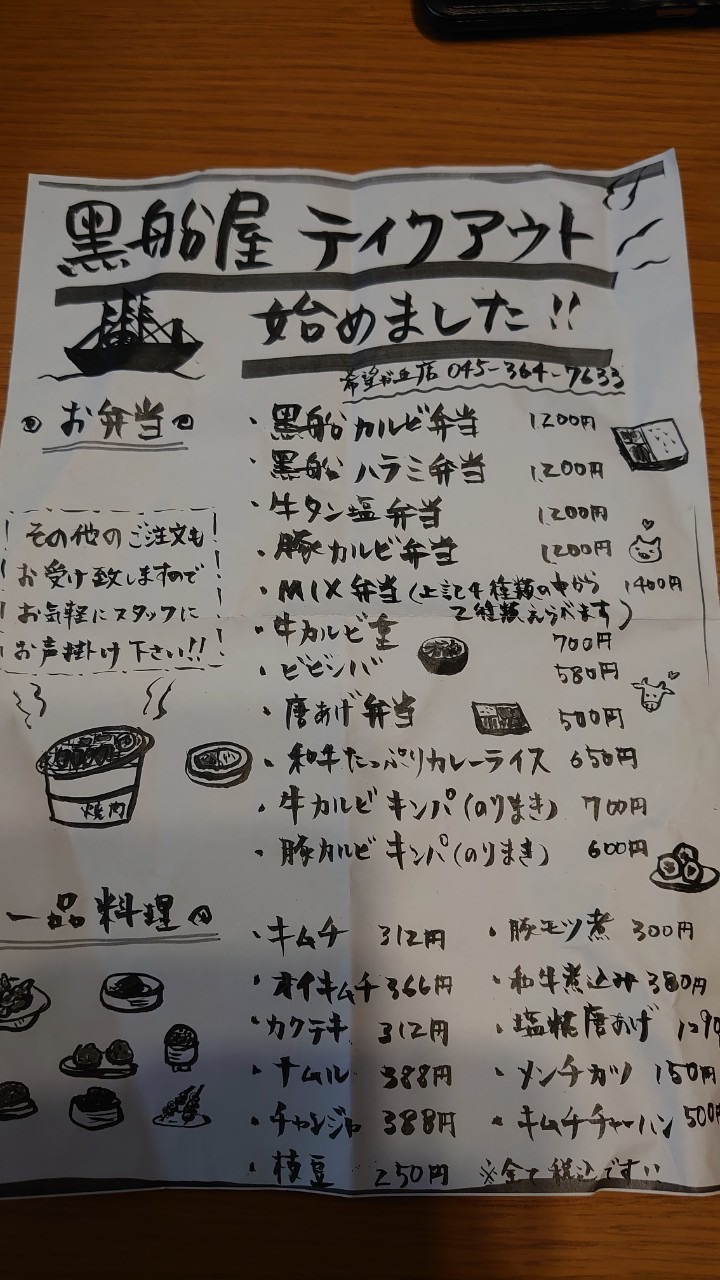 黒船屋 テイクアウト
始めました!!
希望が丘店 045-364-7633
お弁当
・黒船カルビ弁当 1,200円
・黒船ハラミ弁当 1,200円
・牛タン塩弁当 1,200円
・豚カルビ弁当 1,200円
・MIX弁当(上記4種類の中から 1,400円
2種類えらべます)
・牛カルビ重 700円
・ビビンバ 580円
・唐あげ弁当 500円
・和牛たっぷりカレーライス 650円
・牛カルビキンパ(のりまき) 700円
・豚カルビキンパ(のりまき) 600円
その他のご注文も
お受け致しますので
お気軽にスタッフに
お声掛け下さい!!
焼肉
一品料理
・キムチ 312円
・オイキムチ 366円
・カクテキ 312円
・ナムル 388円
・チャンジャ 388円
・枝豆 250円
・豚モツ煮 300円
・和牛煮込み 380円
・塩糀唐あげ
・メンチカツ 150円
・キムチチャーハン 500円
※全て税込ですい